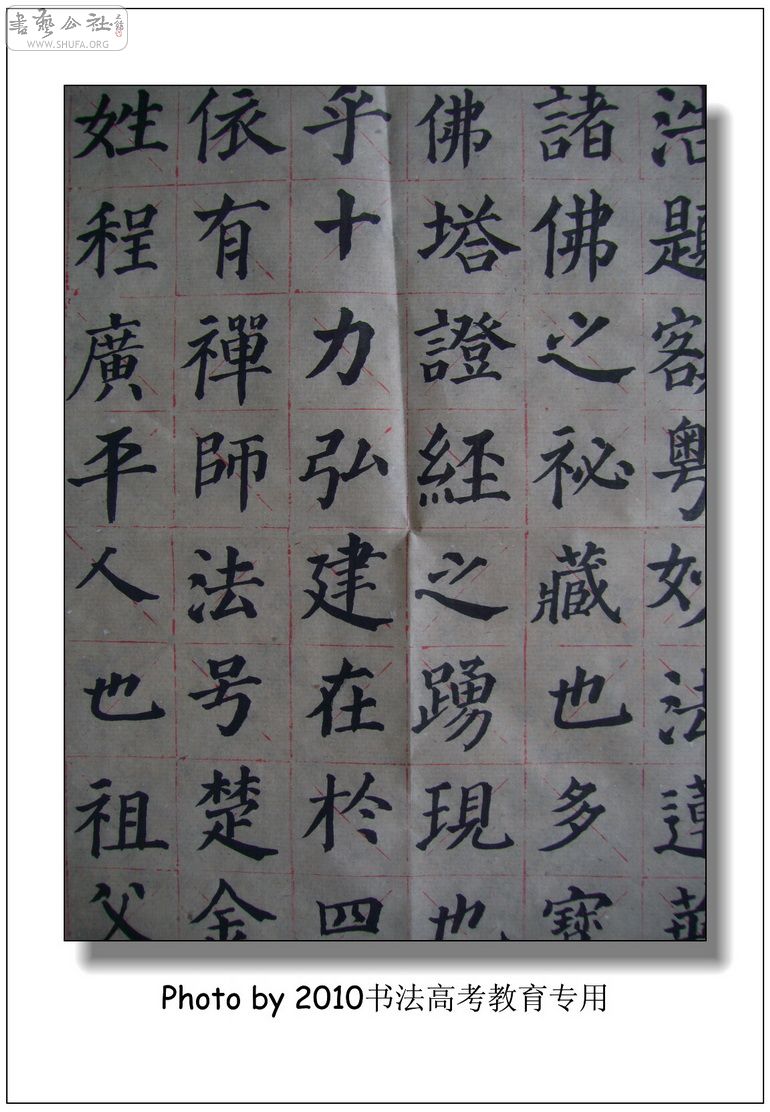 書藝公社
WWW.SHUFA.ORG
浩題額粤妙法蓮華
諸佛之祕藏也多寶
佛塔證經之踴現也
乎十力弘建在於四
依有禪師法号楚金
姓程廣平人也祖父
Photo by 2010书法高考教育专用